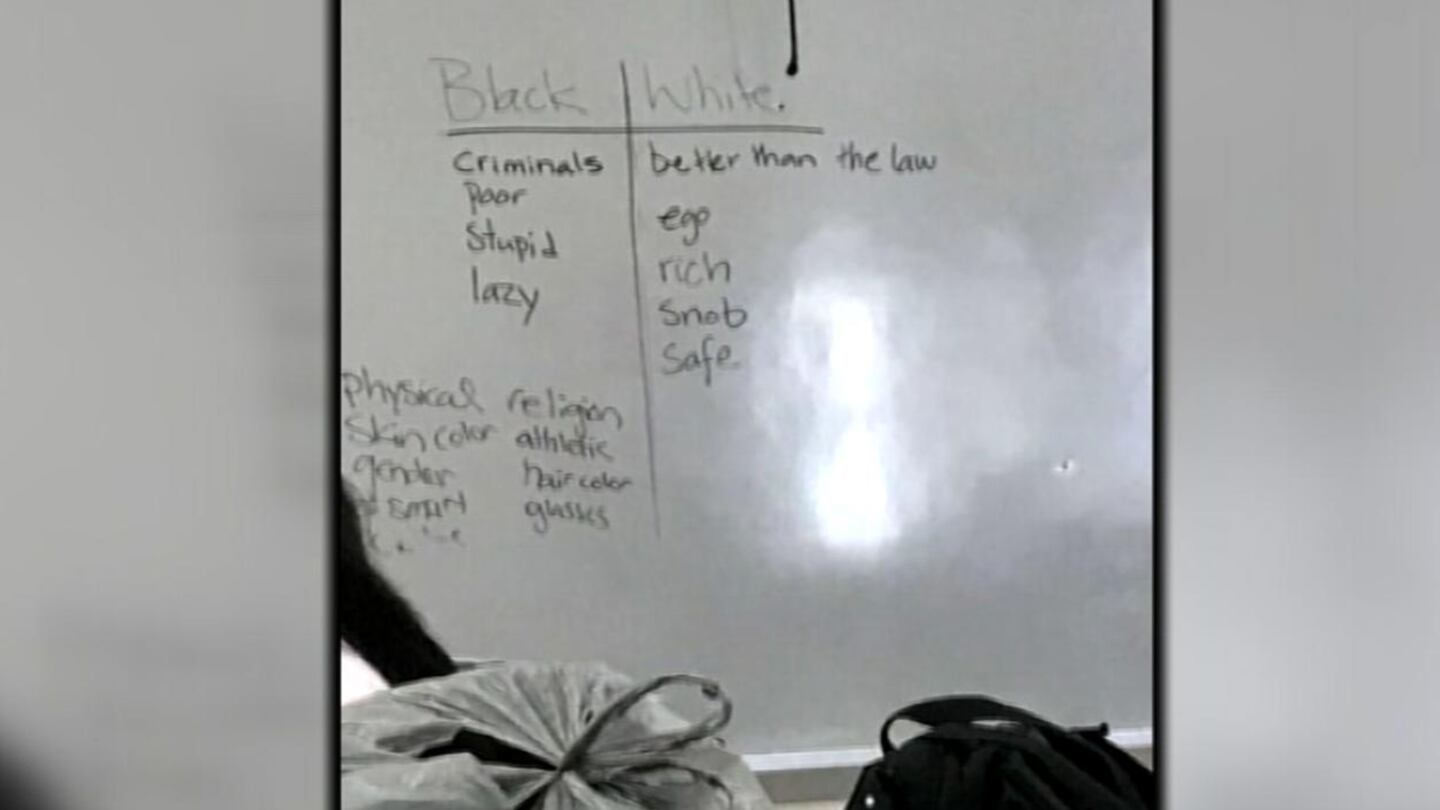 Black White.
Criminals better than the law
Poor
ego
Stupid
rich
lazy
Snob
Safe
physical religion
Skin color athletic
gender hair color
smart glasses